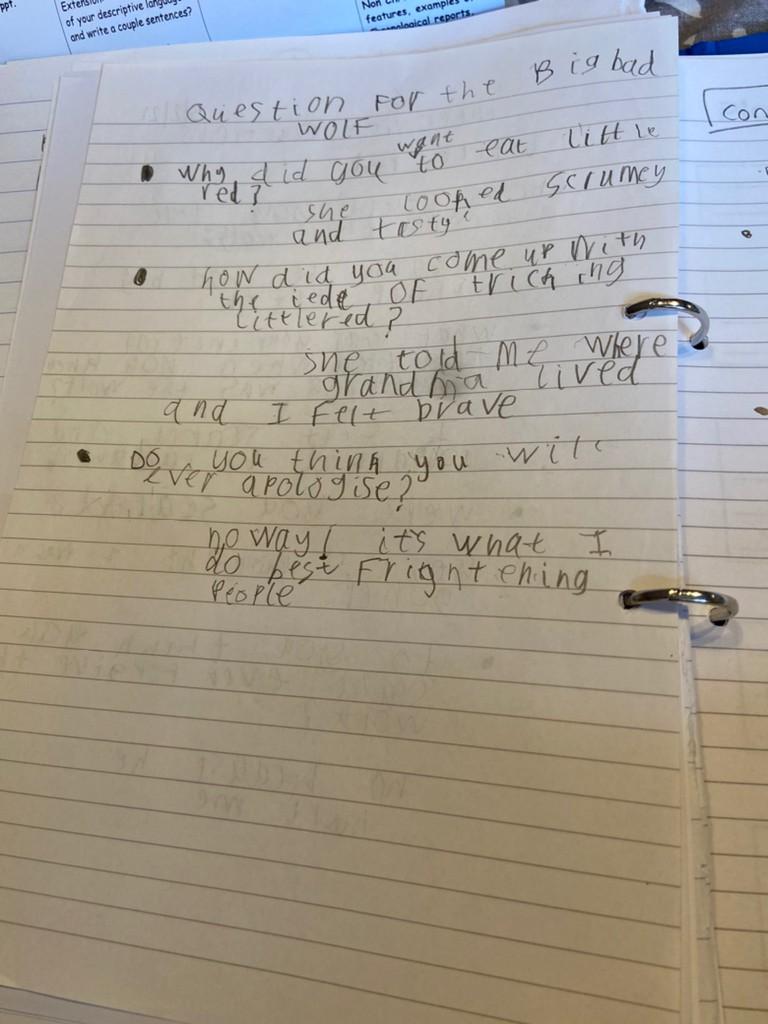 ppt.
Extension
of your descriptive language
and write a couple sentences?
features, examples
reports.
Con
Question For the Big bad
WOLF
• why did you want to eat little
red?
she looked scrumcy
and tasty!
• how did you come up with
the iede OF tricking
littlered?
she told me where
grandma lived
and I felt brave
• DO you think you will
ever apologise?
no way! it's what I
do best Frightening
People